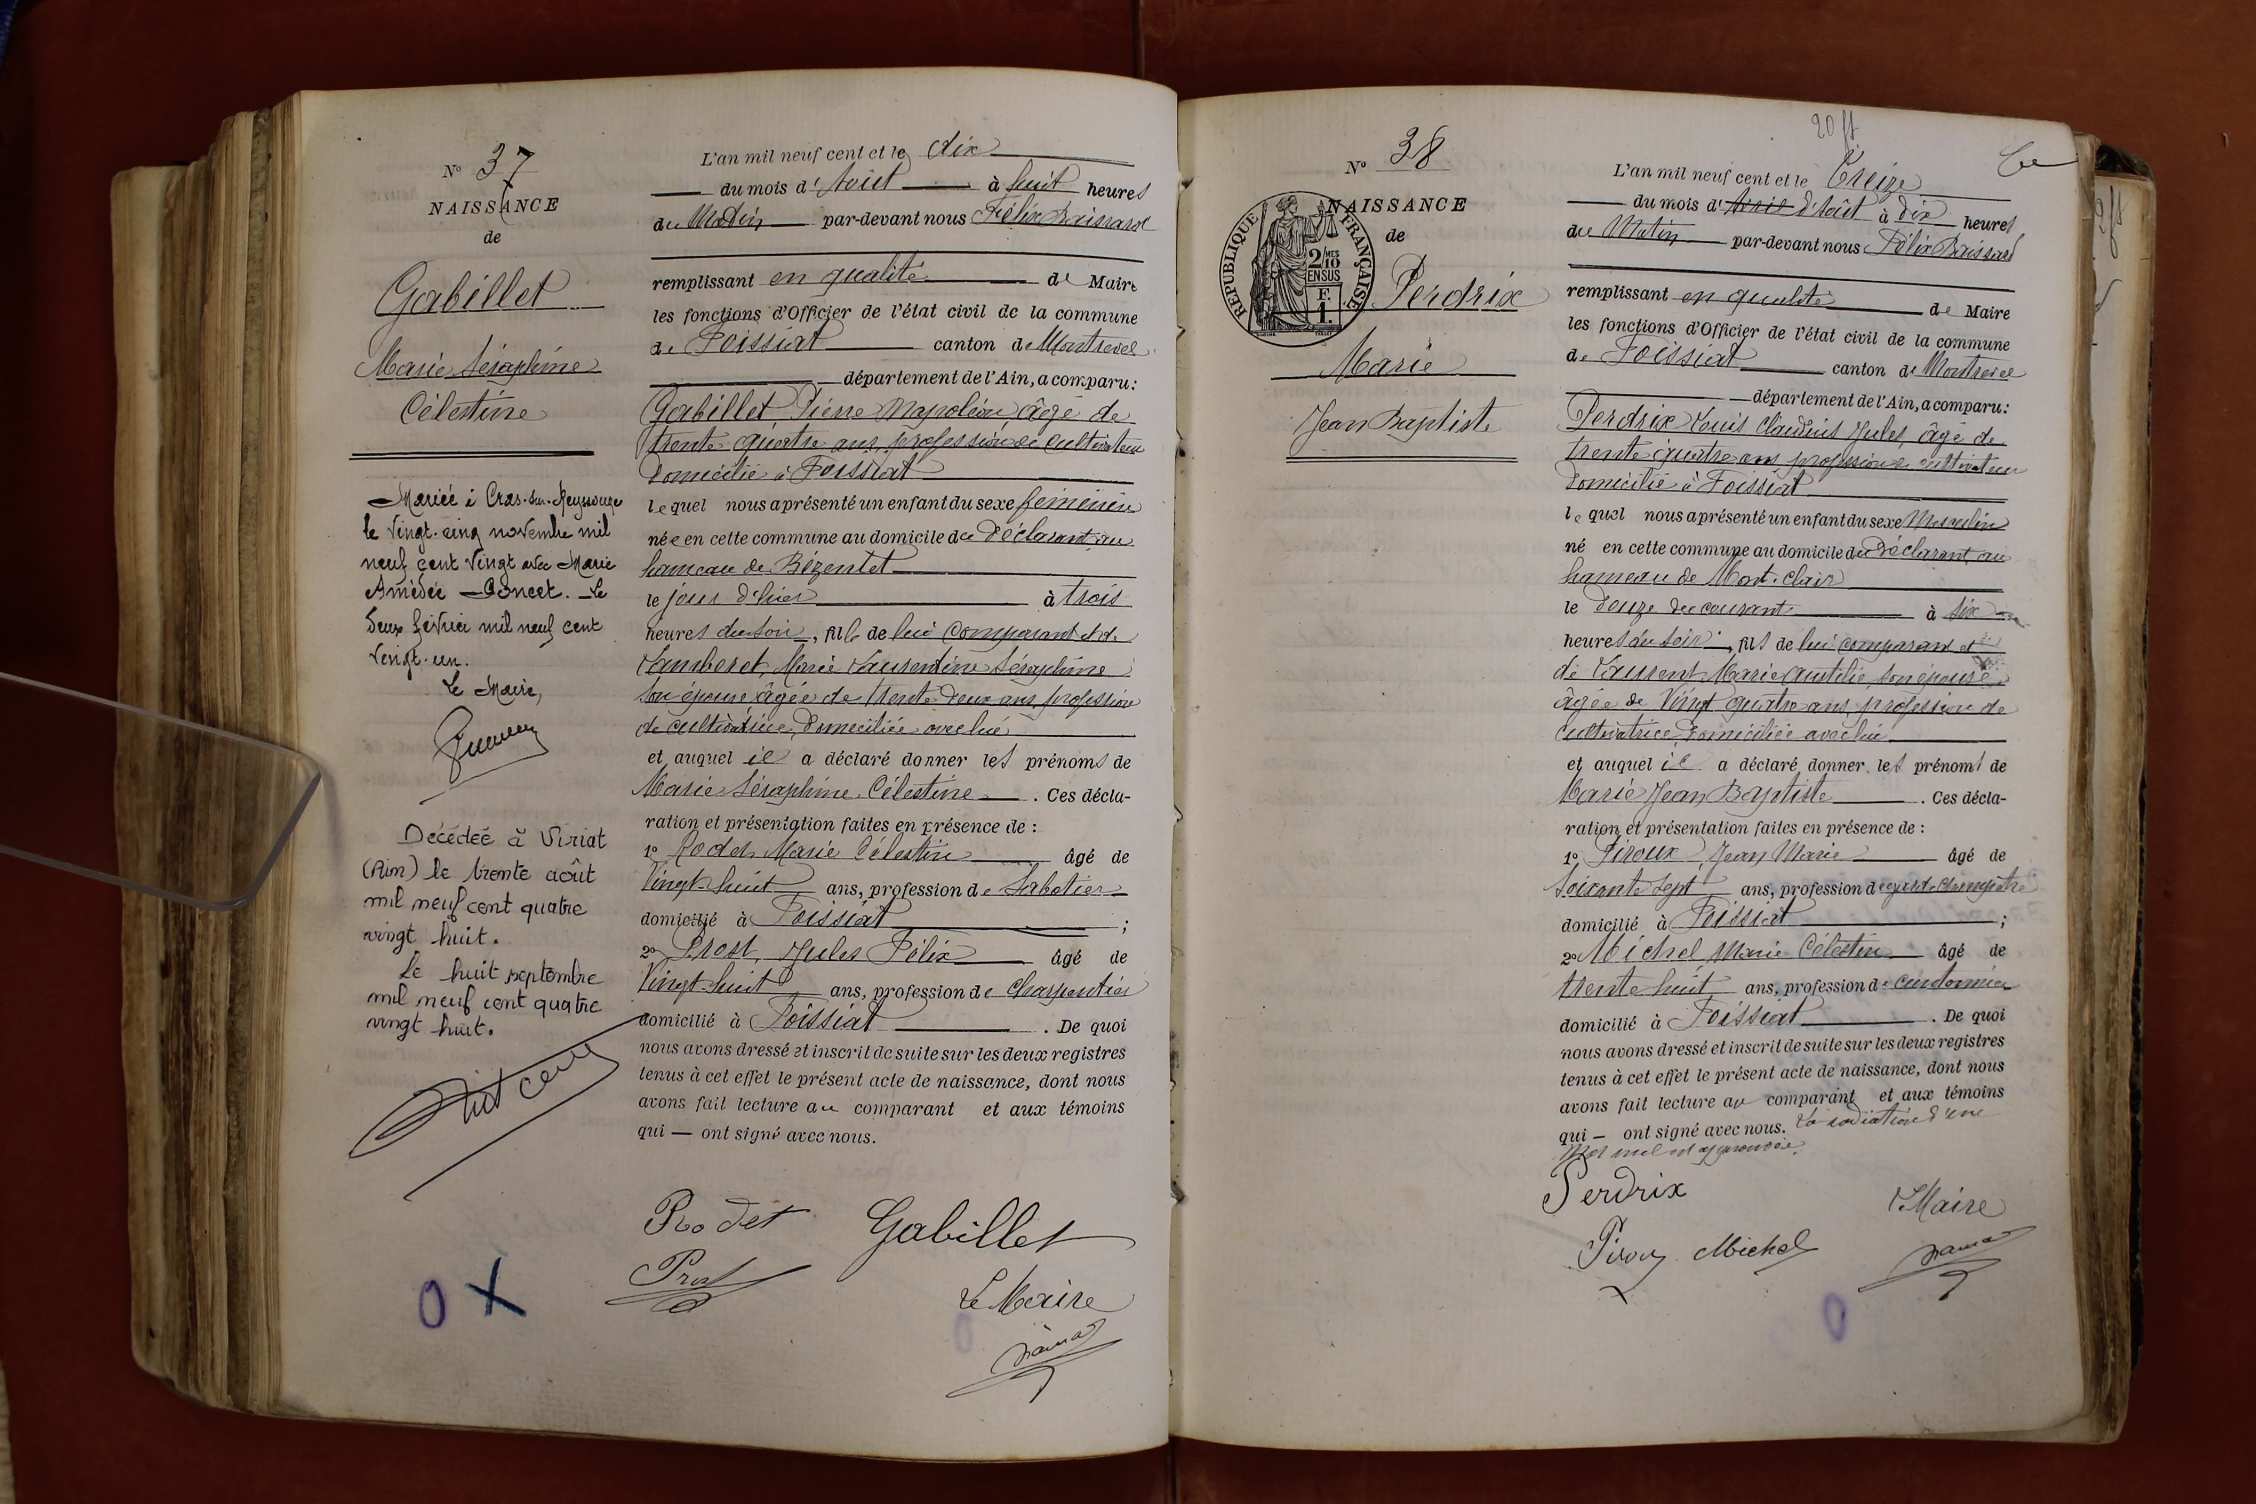 N° 37
NAISSANCE
de
Gabillet
Marie Séraphine
Célestine
Mariée à Cras-sur-Reyssouze
le vingt-cinq novembre mil
neuf cent vingt avec Marie
Amédée Poncet. Le
deux février mil neuf cent
vingt-un.
Le Maire,
Décédée à Viriat
(Ain) le trente août
mil neuf cent quatre
vingt huit.
Le huit septembre
mil neuf cent quatre
vingt huit.
L'an mil neuf cent et le dix
du mois d'Août à huit heures
du Matin par-devant nous Félix
remplissant en qualité de Maire
les fonctions d'Officier de l'état civil de la commune
de Foissiat canton de Montrevel
département de l'Ain, a comparu:
Gabillet Pierre Napoléon âgé de
trente quatre ans, profession de cultivateur
domicilié à Foissiat
lequel nous a présenté un enfant du sexe féminin
née en cette commune au domicile du déclarant, au
hameau de Bézentet
le jour d'hier à trois
heures du soir, fille de lui comparant et de
Lamberet, Marie Laurentine Séraphine
son épouse, âgée de trente deux ans, profession
de cultivatrice, domiciliée avec lui
et auquel il a déclaré donner les prénoms de
Marie Séraphine Célestine. Ces décla-
ration et présentation faites en présence de :
1° Rodet, Marie Célestin âgé de
Vingt-huit ans, profession de Sabotier
domicilié à Foissiat ;
2° Prost, Jules Félix âgé de
Vingt-huit ans, profession de Charpentier
domicilié à Foissiat. De quoi
nous avons dressé et inscrit de suite sur les deux registres
tenus à cet effet le présent acte de naissance, dont nous
avons fait lecture au comparant et aux témoins
qui — ont signé avec nous.
Rodet Gabillet
Prost
Le Maire
O X
20 ft
N° 38
NAISSANCE
de
REPUBLIQUE FRANÇAISE
2/10
MES
EN SUS
F.
1.
Perdrix
Marie
Jean Baptiste
L'an mil neuf cent et le Treize
du mois d'Avril d'Août à dix heures
du Matin par-devant nous Félix
remplissant en qualité de Maire
les fonctions d'Officier de l'état civil de la commune
de Foissiat canton de Montrevel
département de l'Ain, a comparu:
Perdrix Louis Claudius Jules, âgé de
trente quatre ans profession de cultivateur
domicilié à Foissiat
lequel nous a présenté un enfant du sexe Masculin
né en cette commune au domicile du déclarant, au
hameau de Mont-clair
le douze du courant à six
heures du soir, fils de lui comparant et
de Laurent Marie son épouse
âgée de Vingt quatre ans, profession de
Cultivatrice, domiciliée avec lui
et auquel il a déclaré donner les prénoms de
Marie Jean Baptiste. Ces décla-
ration et présentation faites en présence de :
1° Piroux, Jean Marie âgé de
Soixante Sept ans, profession de garde-champêtre
domicilié à Foissiat ;
2° Michel Marie Célestin âgé de
trente huit ans, profession de cordonnier
domicilié à Foissiat. De quoi
nous avons dressé et inscrit de suite sur les deux registres
tenus à cet effet le présent acte de naissance, dont nous
avons fait lecture au comparant et aux témoins
qui — ont signé avec nous. La radiation d'un
Mot nul est approuvée.
Perdrix
Le Maire
Piroux Michel
O